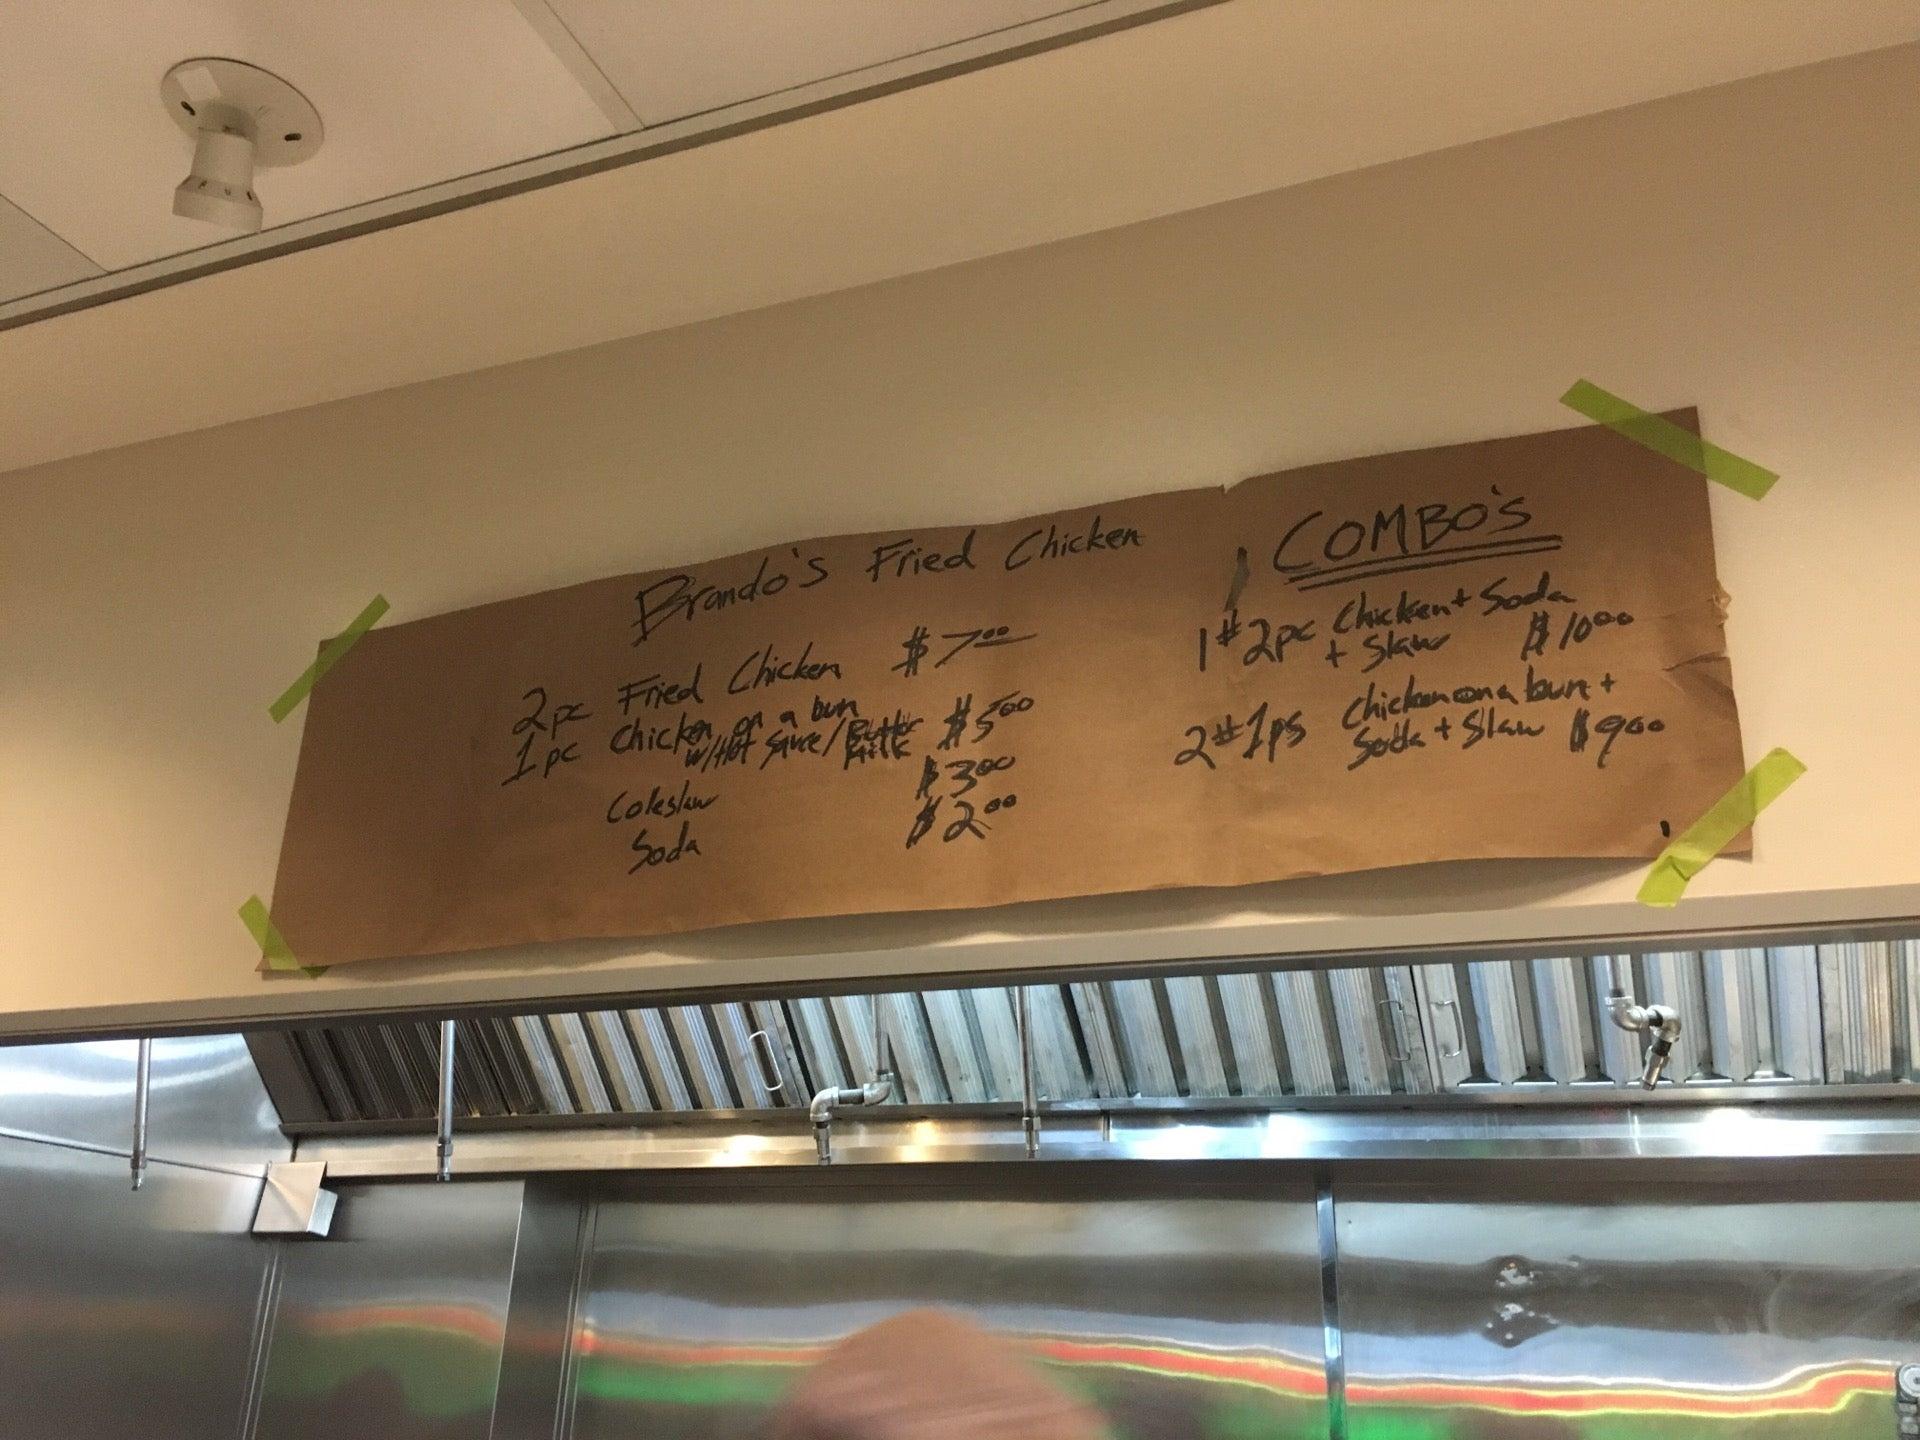 Brando's Fried Chicken
2pc Fried Chicken $7.00
1pc Chicken on a bun $5.00
w/Hot Sauce/Butter
Milk
Coleslaw $3.00
Soda $2.00
COMBO'S
1# 2pc Chicken + Soda
+ Slaw $10.00
2# 1ps Chicken on a bun +
Soda + Slaw $9.00